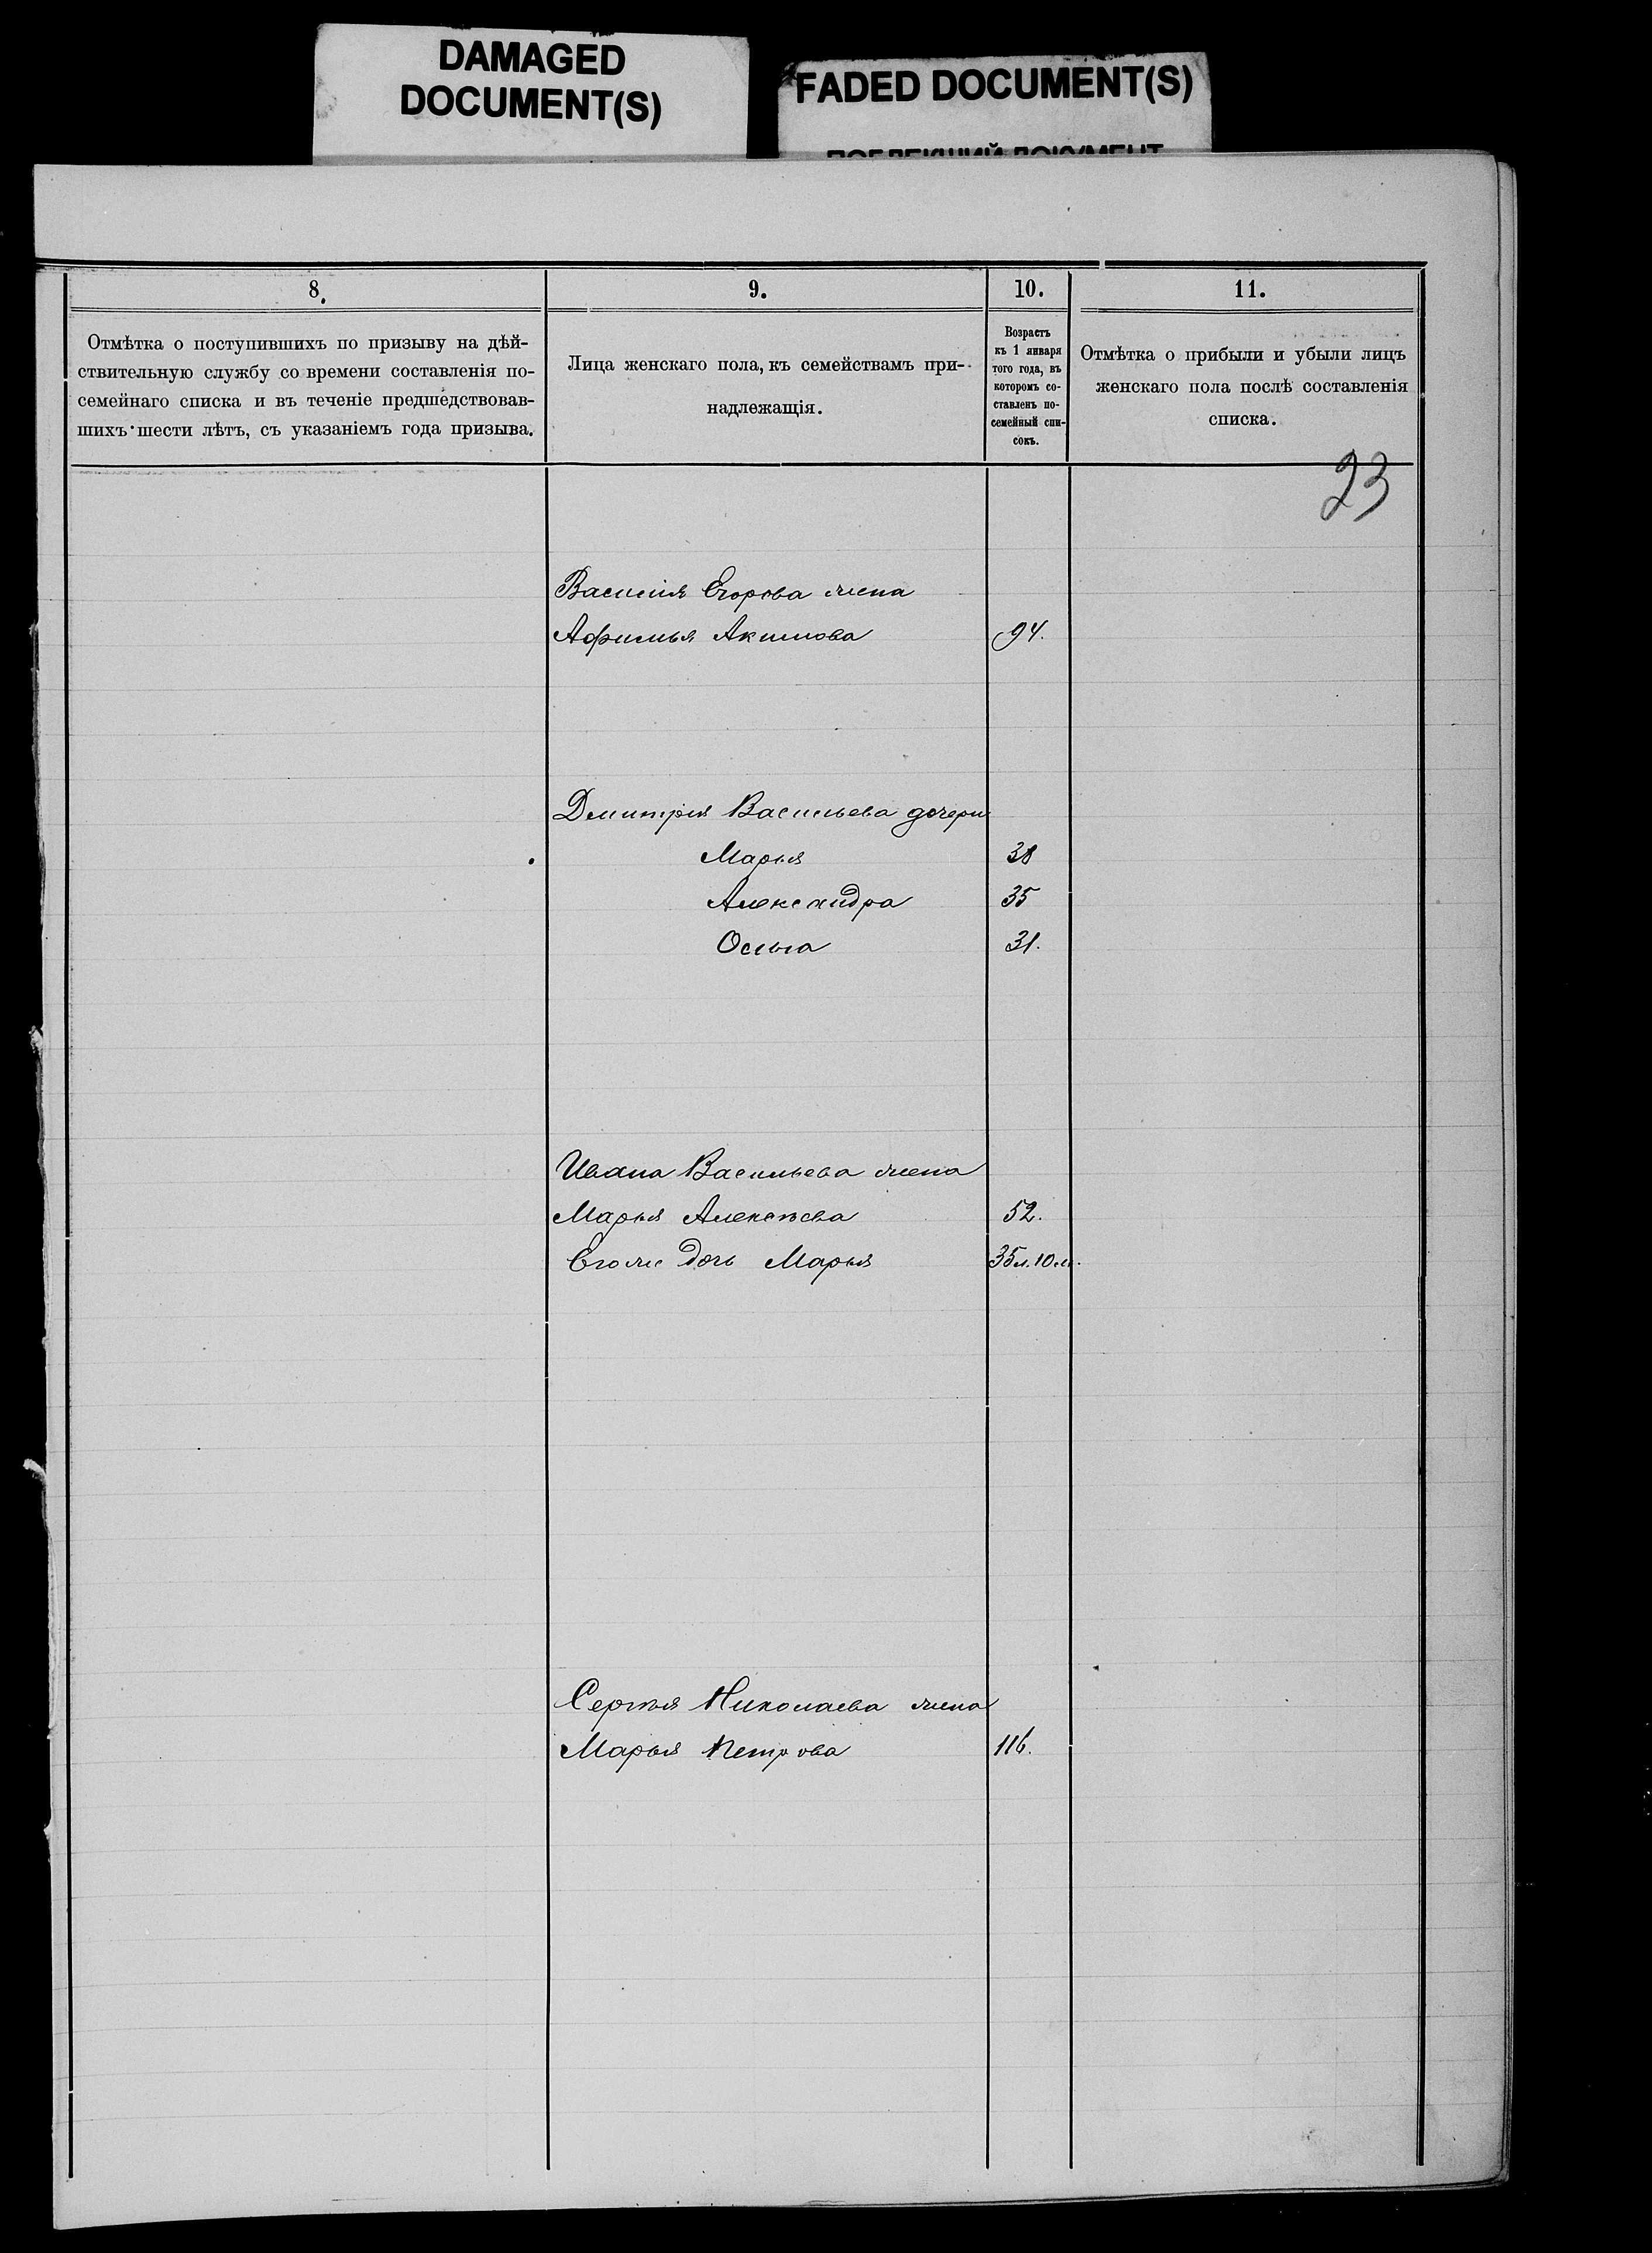 DAMAGED
DOCUMENT(S)
FADED DOCUMENT(S)
ПОБЛЕКШИЙ ДОКУМЕНТ
8.
9.
10.
11.
Отмѣтка о поступившихъ по призыву на дѣй-
ствительную службу со времени составленія по-
семейнаго списка и въ теченіе предшедствовав-
шихъ шести лѣтъ, съ указаніемъ года призыва.
Лица женскаго пола, къ семействамъ при-
надлежащія.
Возрастъ
къ 1 января
того года, въ
которомъ со-
ставленъ по-
семейный спи-
сокъ.
Отмѣтка о прибыли и убыли лицъ
женскаго пола послѣ составленія
списка.
23
Василія Егорова жена
Афимья Акимова 94.
Дмитрія Васильева дочери
Марья 38
Александра 35
Ольга 31.
Ивана Васильева жена
Марья Алексѣева 52.
Егоже дочь Марья 35 л. 10 м.
Сергѣя Николаева жена
Марья Петрова 116.